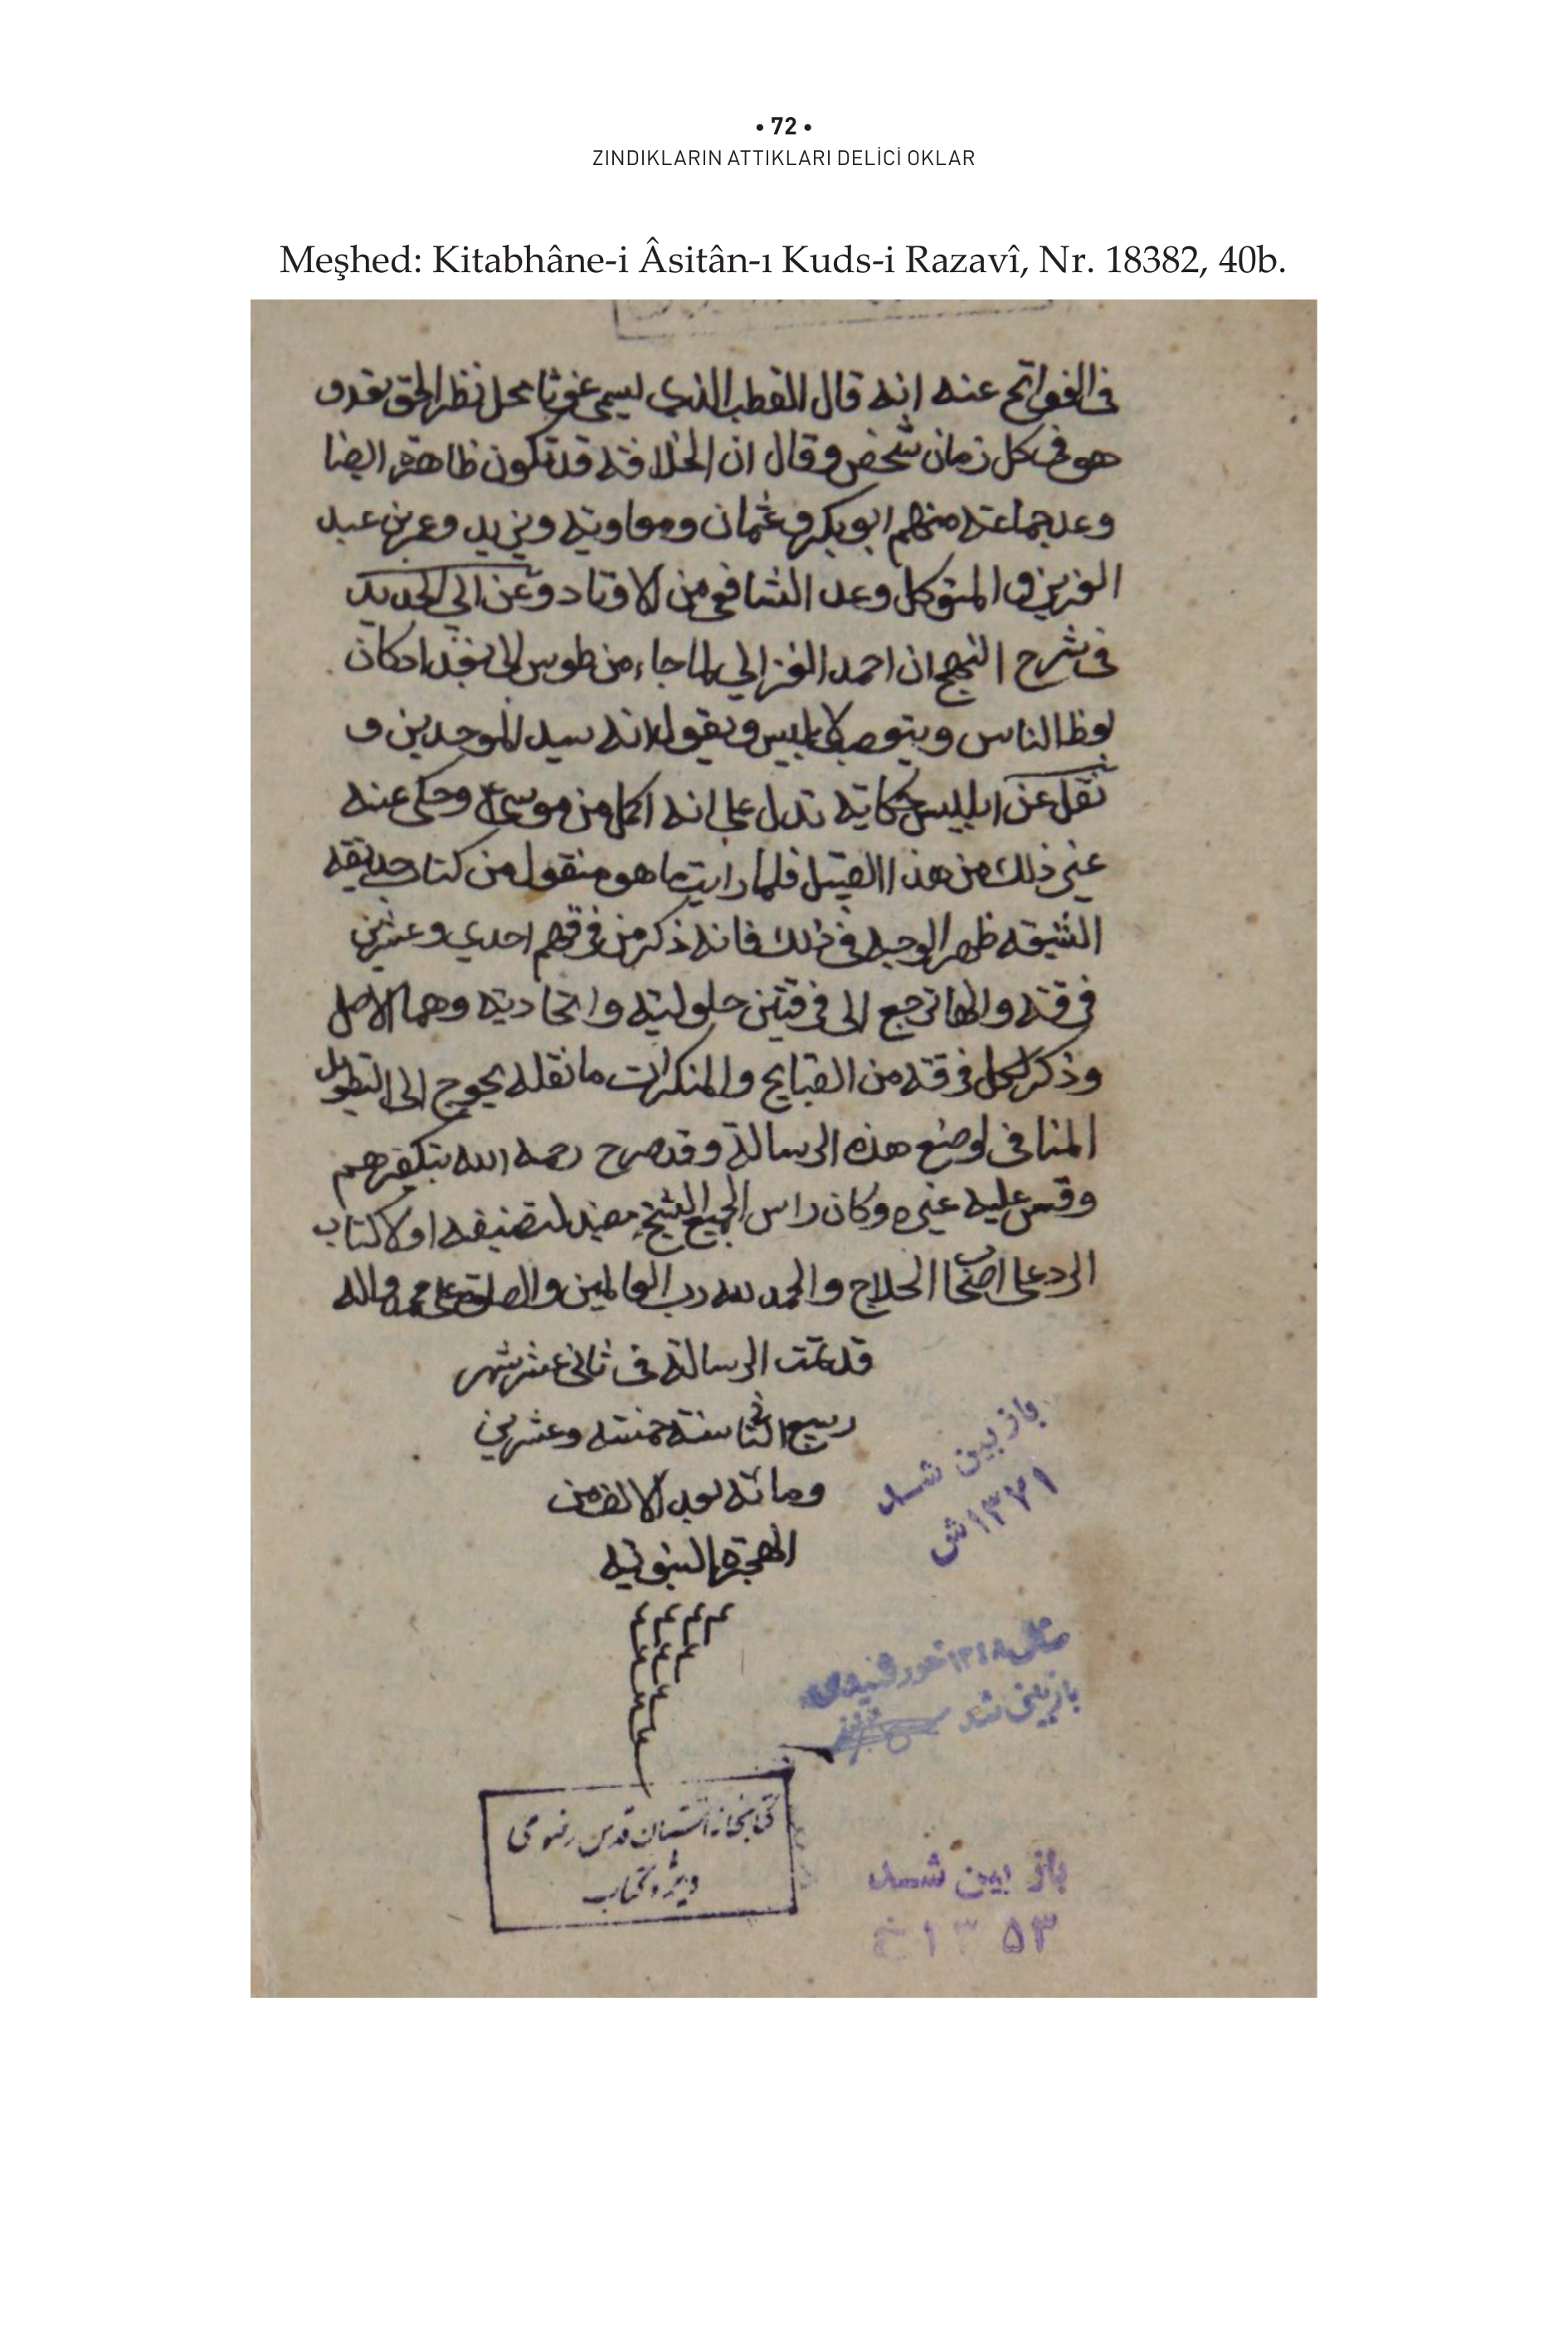 • 72 •
ZINDIKLARIN ATTIKLARI DELİCİ OKLAR
Meşhed: Kitabhâne-i Âsitân-ı Kuds-i Razavî, Nr. 18382, 40b.
فى الفواتح عنه انه قال القطب الذي يسمى غوثا محل نظر الحق تقد و
هو فى كل زمان شخص وقال ان الخلافة قد تكون ظاهرة ايضا
وعد جماعة منهم ابو بكر و عثمان ومعاوية ويزيد وعمر بن عبد
العزيز و المتوكل وعد الشافعي من الاوتاد وعن ابي الحديد
فى شرح النهج ان احمد الغزالي لما جاء من طوس الى بغداد كان
يعظ الناس ويتعصب لابليس ويقول انه سيد الموحدين و
نقل عن ابليس حكاية تدل على انه اكمل من موسى ع وحكى عنه
غير ذلك من هذا القبيل فلما رايت ما هو منقول من كتاب حديقه
الشيعه ظهر الوجه فى ذلك فانه ذكر من فرقهم احدي وعشرين
فرقة وانها ترجع الى فرقتين حلولية واتحادية وهما الاصل
وذكر لكل فرقة من القبايح والمنكرات ما نقله يحوج الى التطويل
المنافى لوضع هذه الرسالة وقد صرح رحمه الله بتكفيرهم
وقس عليه غيره وكان راس الجميع الشيخ مفيد لتصنيفه اولا كتاب
الرد على اصحاب الحلاج والحمد لله رب العالمين والصلوة على محمد واله
قد تمت الرسالة فى ثانى عشر شهر
ربيع الثانى سنة خمسة وعشرين
ومائة بعد الالف من
الهجرة النبوية
باز بين شد
۱۳۷۱ش
بازبینی شد
كتابخانه آستان قدس رضوى
باز بين شد
۱۳۵۳